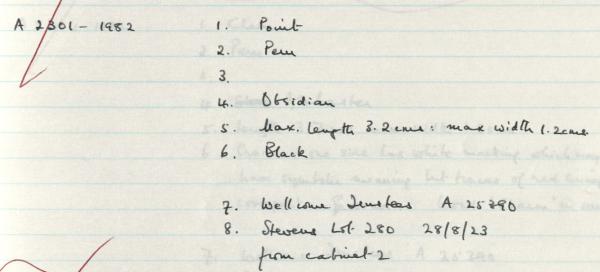 A 2301 - 1982 1. Point
2. Peru
3.
4. Obsidian
5. Max. length 3.2cms: max width 1.2cms.
6. Black
7. Wellcome Trustees A 25390
8. Stevens Lot 280 28/8/23
from cabinet 2